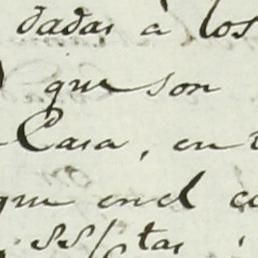 dadas à los
que son
Casa, en
que en el
SS/tas